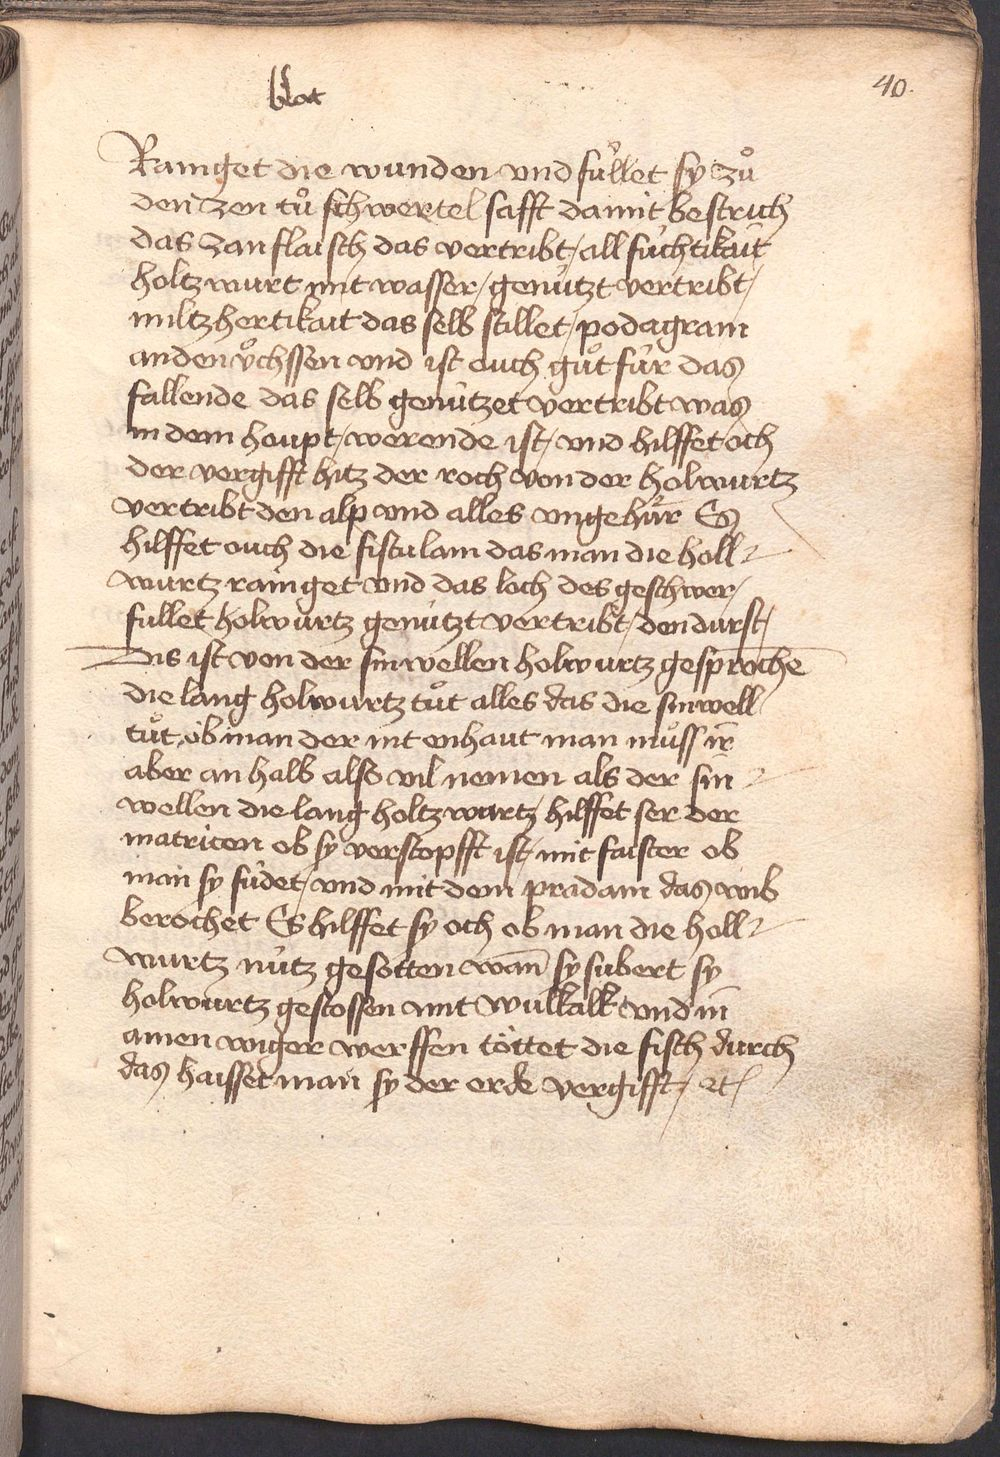 blat
40.
Rainget die wunden vnd fúllet sy zů
den zen tů schwertel safft damit bestrich
das zanflaisch das vertribt / all fúchtikait
holtzwurt mit wasser / genútzt vertribt /
miltzhertikait das selb stillet / podagram
an den v̊chssen vnd ist ouch gůt fúr das
fallende das selb genútzet vertribt was
in dem houpt / werende ist / vnd hilffet och
der vergifft hitz der roch von der holwurtz
vertribt den alp vnd alles vngehúr Es
hilffet ouch die fistulam das man die holl-
wurtz rainget vnd das loch des geschwer /
fullet holwurtz genútzt vertribt / den durst /
Dis ist von der sinwellen holwurtz gesproche̅
die lang holwurtz tůt alles das die sinwell
tůt ob man der nit enhaut man můss ir̅
aber an halb also vil nemen als der sin-
wellen die lang holtzwurtz / hilffet ser der
matricen ob sy verstopfft ist / mit faister ob
man sy fúdet / vnd mit dem pradam das wib
berochet Es hilffet sy och ob man die holl-
wurtz nútz gesotten wan̅ sy subert sy
holwurtz gestossen mit wullkalk vnd in̅
ainen wiger werffen tôttet die fisch durch
das haisset man sy der erde vergifft / etc